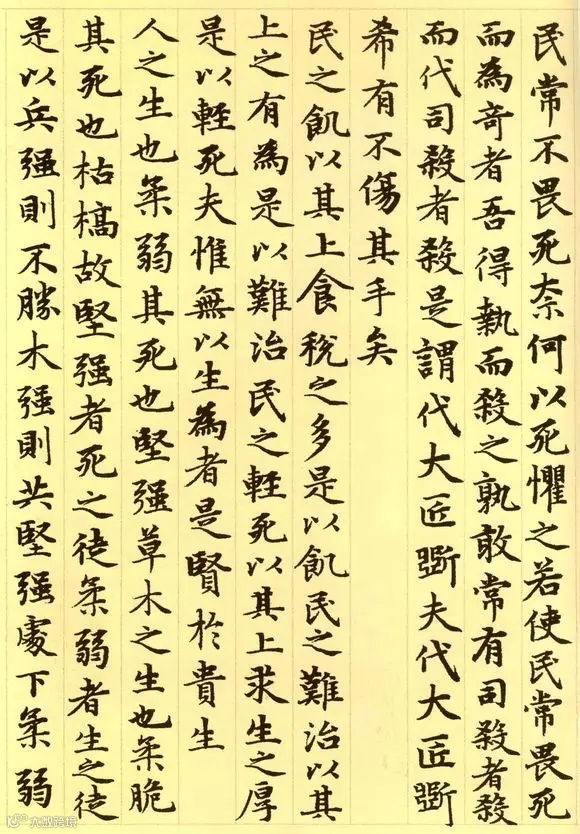 民常不畏死柰何以死懼之若使民常畏死
而為奇者吾得執而殺之孰敢常有司殺者殺
而代司殺者殺是謂代大匠斲夫代大匠斲
希有不傷其手矣
民之飢以其上食稅之多是以飢民之難治以其
上之有為是以難治民之輕死以其上求生之厚
是以輕死夫惟無以生為者是賢於貴生
人之生也柔弱其死也堅强草木之生也柔脆
其死也枯槁故堅强者死之徒柔弱者生之徒
是以兵强則不勝木强則共堅强處下柔弱
大做跨境